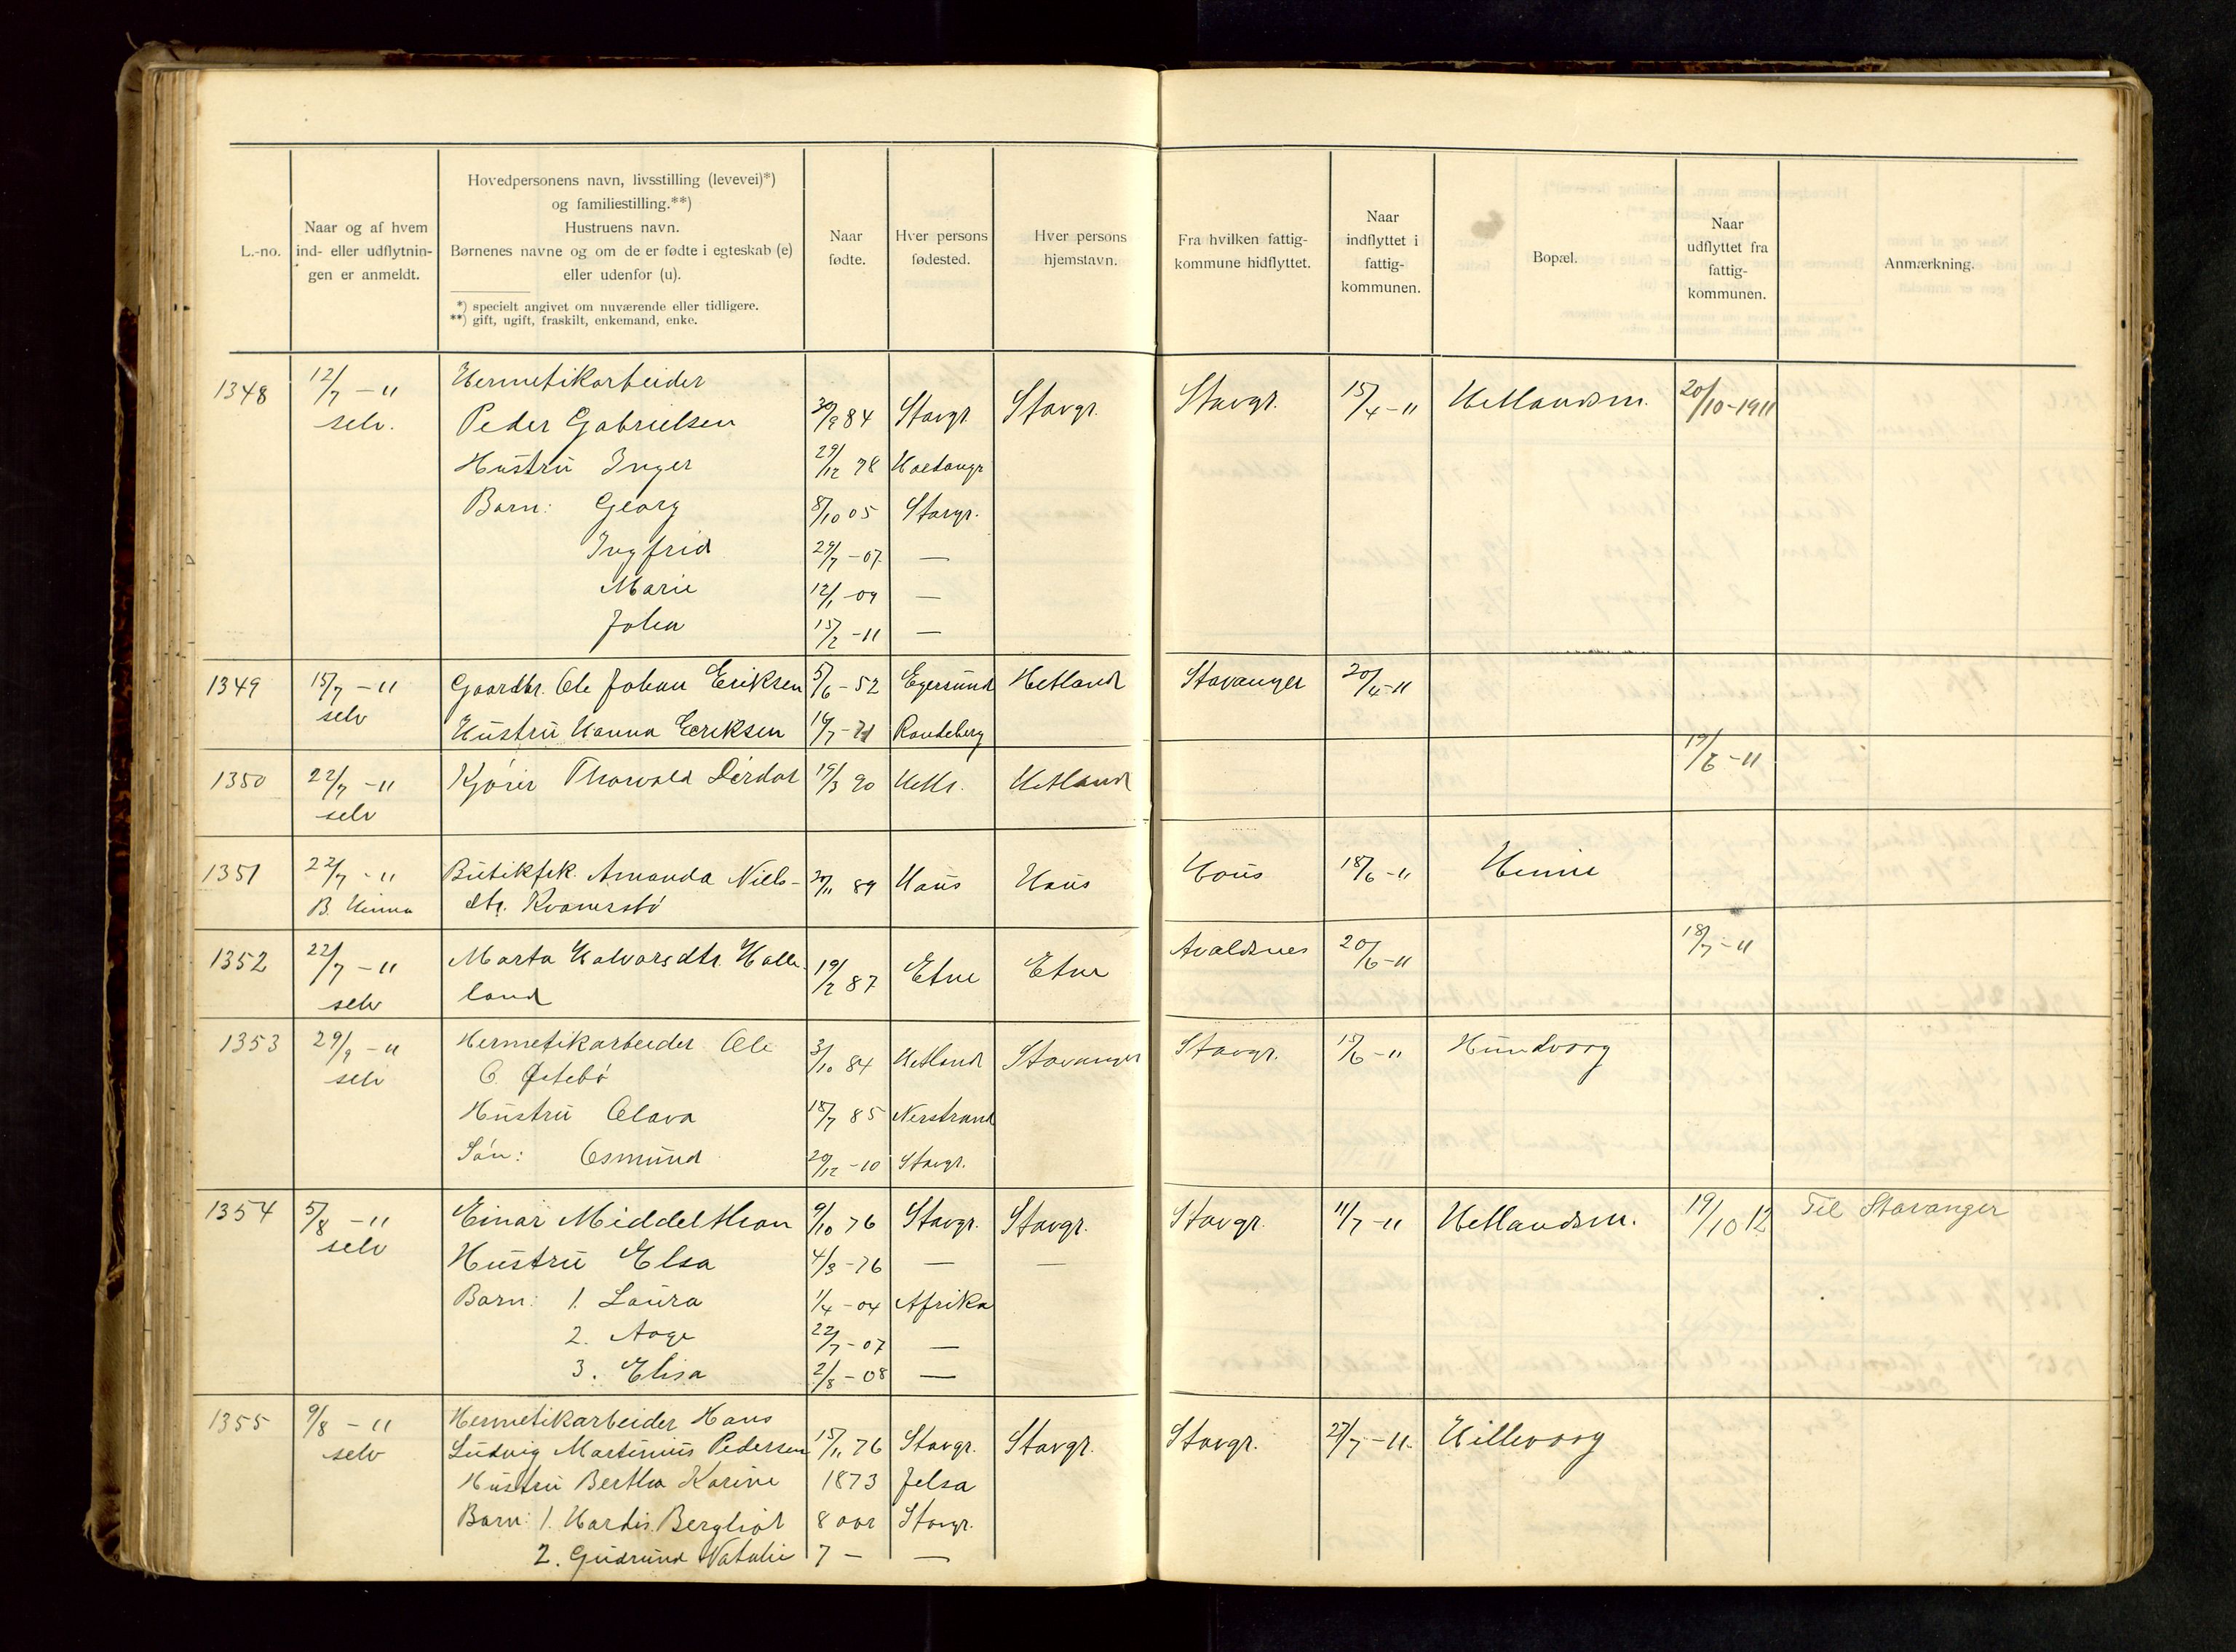 L.-no.
Naar og af hvem
ind- eller udflytnin-
gen er anmeldt.
Hovedpersonens navn, livsstilling (levevei)*)
og familiestilling.**)
Hustruens navn.
Børnenes navne og om de er fødte i egteskab (e)
eller udenfor (u).
*) specielt angivet om nuværende eller tidligere.
**) gift, ugift, fraskilt, enkemand, enke.
Naar
fødte.
Hver persons
fødested.
Hver persons
hjemstavn.
Fra hvilken fattig-
kommune hidflyttet.
Naar
indflyttet i
fattig-
kommunen.
Bopæl.
Naar
udflyttet fra
fattig-
kommunen.
Anmærkning.
1348 12/7 - 11 Hermetikarbeider
selv. Peder Gabrielsen 30/9 84 Stavgr. Stavgr. Stavgr. 15/4 - 11 Hetlandsm. 20/10 - 1911
Hustru Inger 29/12 78
Barn: Georg 8/10 05 Stavgr.
Ingfrid 29/7 - 07 —
Marie 12/1 - 09 —
Johan 15/2 - 11 —
1349 15/7 - 11 Gaardbr. Ole Johan Eriksen 5/6 - 52 Egersund Hetland Stavanger 20/4 - 11
selv Hustru Hanna Eriksen 16/7 - 71 Randeberg
1350 22/7 - 11 Kjører Thorvald Lerdal 19/3 90 Hetl. Hetland 19/6 - 11
selv
1351 22/7 - 11 Butikfrk. Amanda Niels- 27/11 89 Haus Haus Haus 18/6 - 11 Hinne
B. Hinna dtr. Kvamersbø
1352 22/7 - 11 Marta Halvorsdtr. Halle- 19/2 87 Etne Etne Avaldsnes 20/6 - 11 18/7 - 11
selv land
1353 29/9 - 11 Hermetikarbeider Ole 3/10 84 Hetland Stavanger Stavgr. 15/6 - 11 Hundvaag
selv O. Østebø
Hustru Olava 18/7 85 Nerstrand
Søn: Osmund 20/12 - 10 Stavgr.
1354 5/8 - 11 Einar Middelthon 9/10 76 Stavgr. Stavgr. Stavgr. 11/7 - 11 Hetlandsm. 19/10 12 Til Stavanger
selv
Hustru Elsa 4/3 - 76 — —
Barn: 1. Laura 1/4 - 04 Afrika
2. Aage 22/7 - 07 —
3. Elisa 2/8 - 08 —
1355 9/8 - 11 Hermetikarbeider Hans
selv Ludvig Martinius Pedersen 15/11 76 Stavgr. Stavgr. Stavgr. 27/7 - 11. Hillevaag
Hustru Bertha Karine 1873 Jelsa
Barn: 1. Hardis Bergliot 8 aar Stavgr.
2. Gudrund Natalie 7 — —